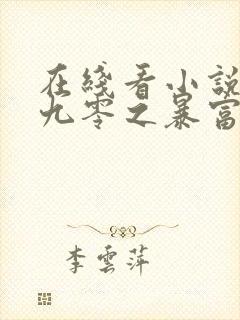 在綫看小說
九零之暴富
李雲萍